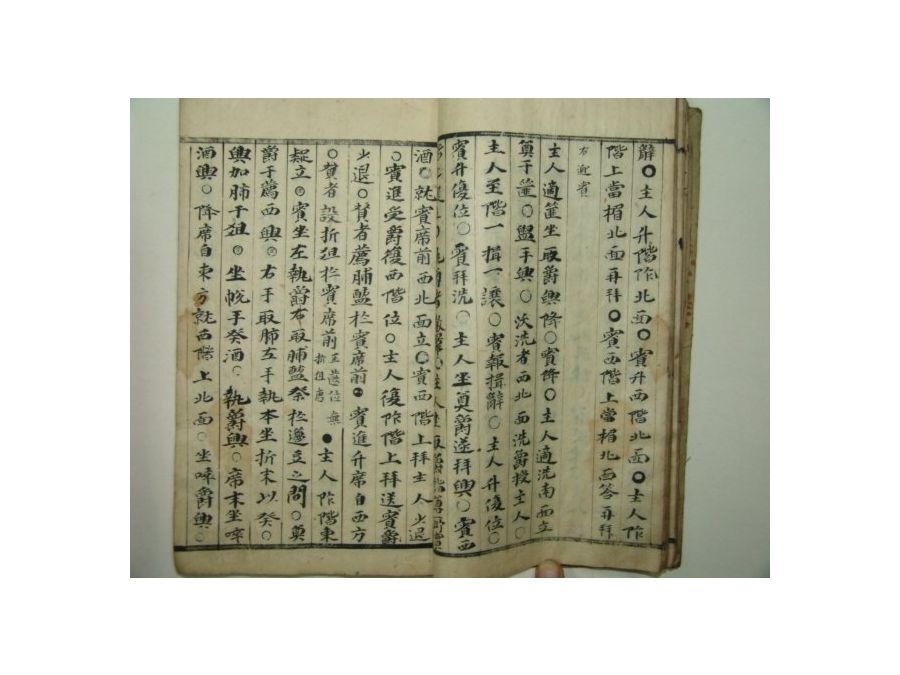 辭○主人升階阼北面○賓升西階北面○主人阼
階上當楣北面再拜○賓西階上當楣北面答再拜
右迎賓
主人適篚坐取爵興降○賓降○主人適洗南面立
奠于篚○盥手興○沃洗者西北面洗爵授主人○
主人至階一揖一讓○賓報揖辭○主人升復位○
賓升復位○賓拜洗○主人坐奠爵送拜興○賓西
酒○就賓席前西北面立○賓西階上拜主人少退
○賓進受爵復西階位○主人復阼階上拜送賓爵
少退○贊者薦脯醢於賓席前○賓進升席自西方
○贊者設折俎於賓席前 ●主人阼階東
疑立○賓坐左執爵右取脯醢祭於籩豆之間○奠
爵于薦西興○右手取肺左手執本坐折末以祭○
興加肺于俎○坐帨手祭酒○執爵興○席末坐啐
酒興○降席自東方就西階上北面○坐啐爵興○